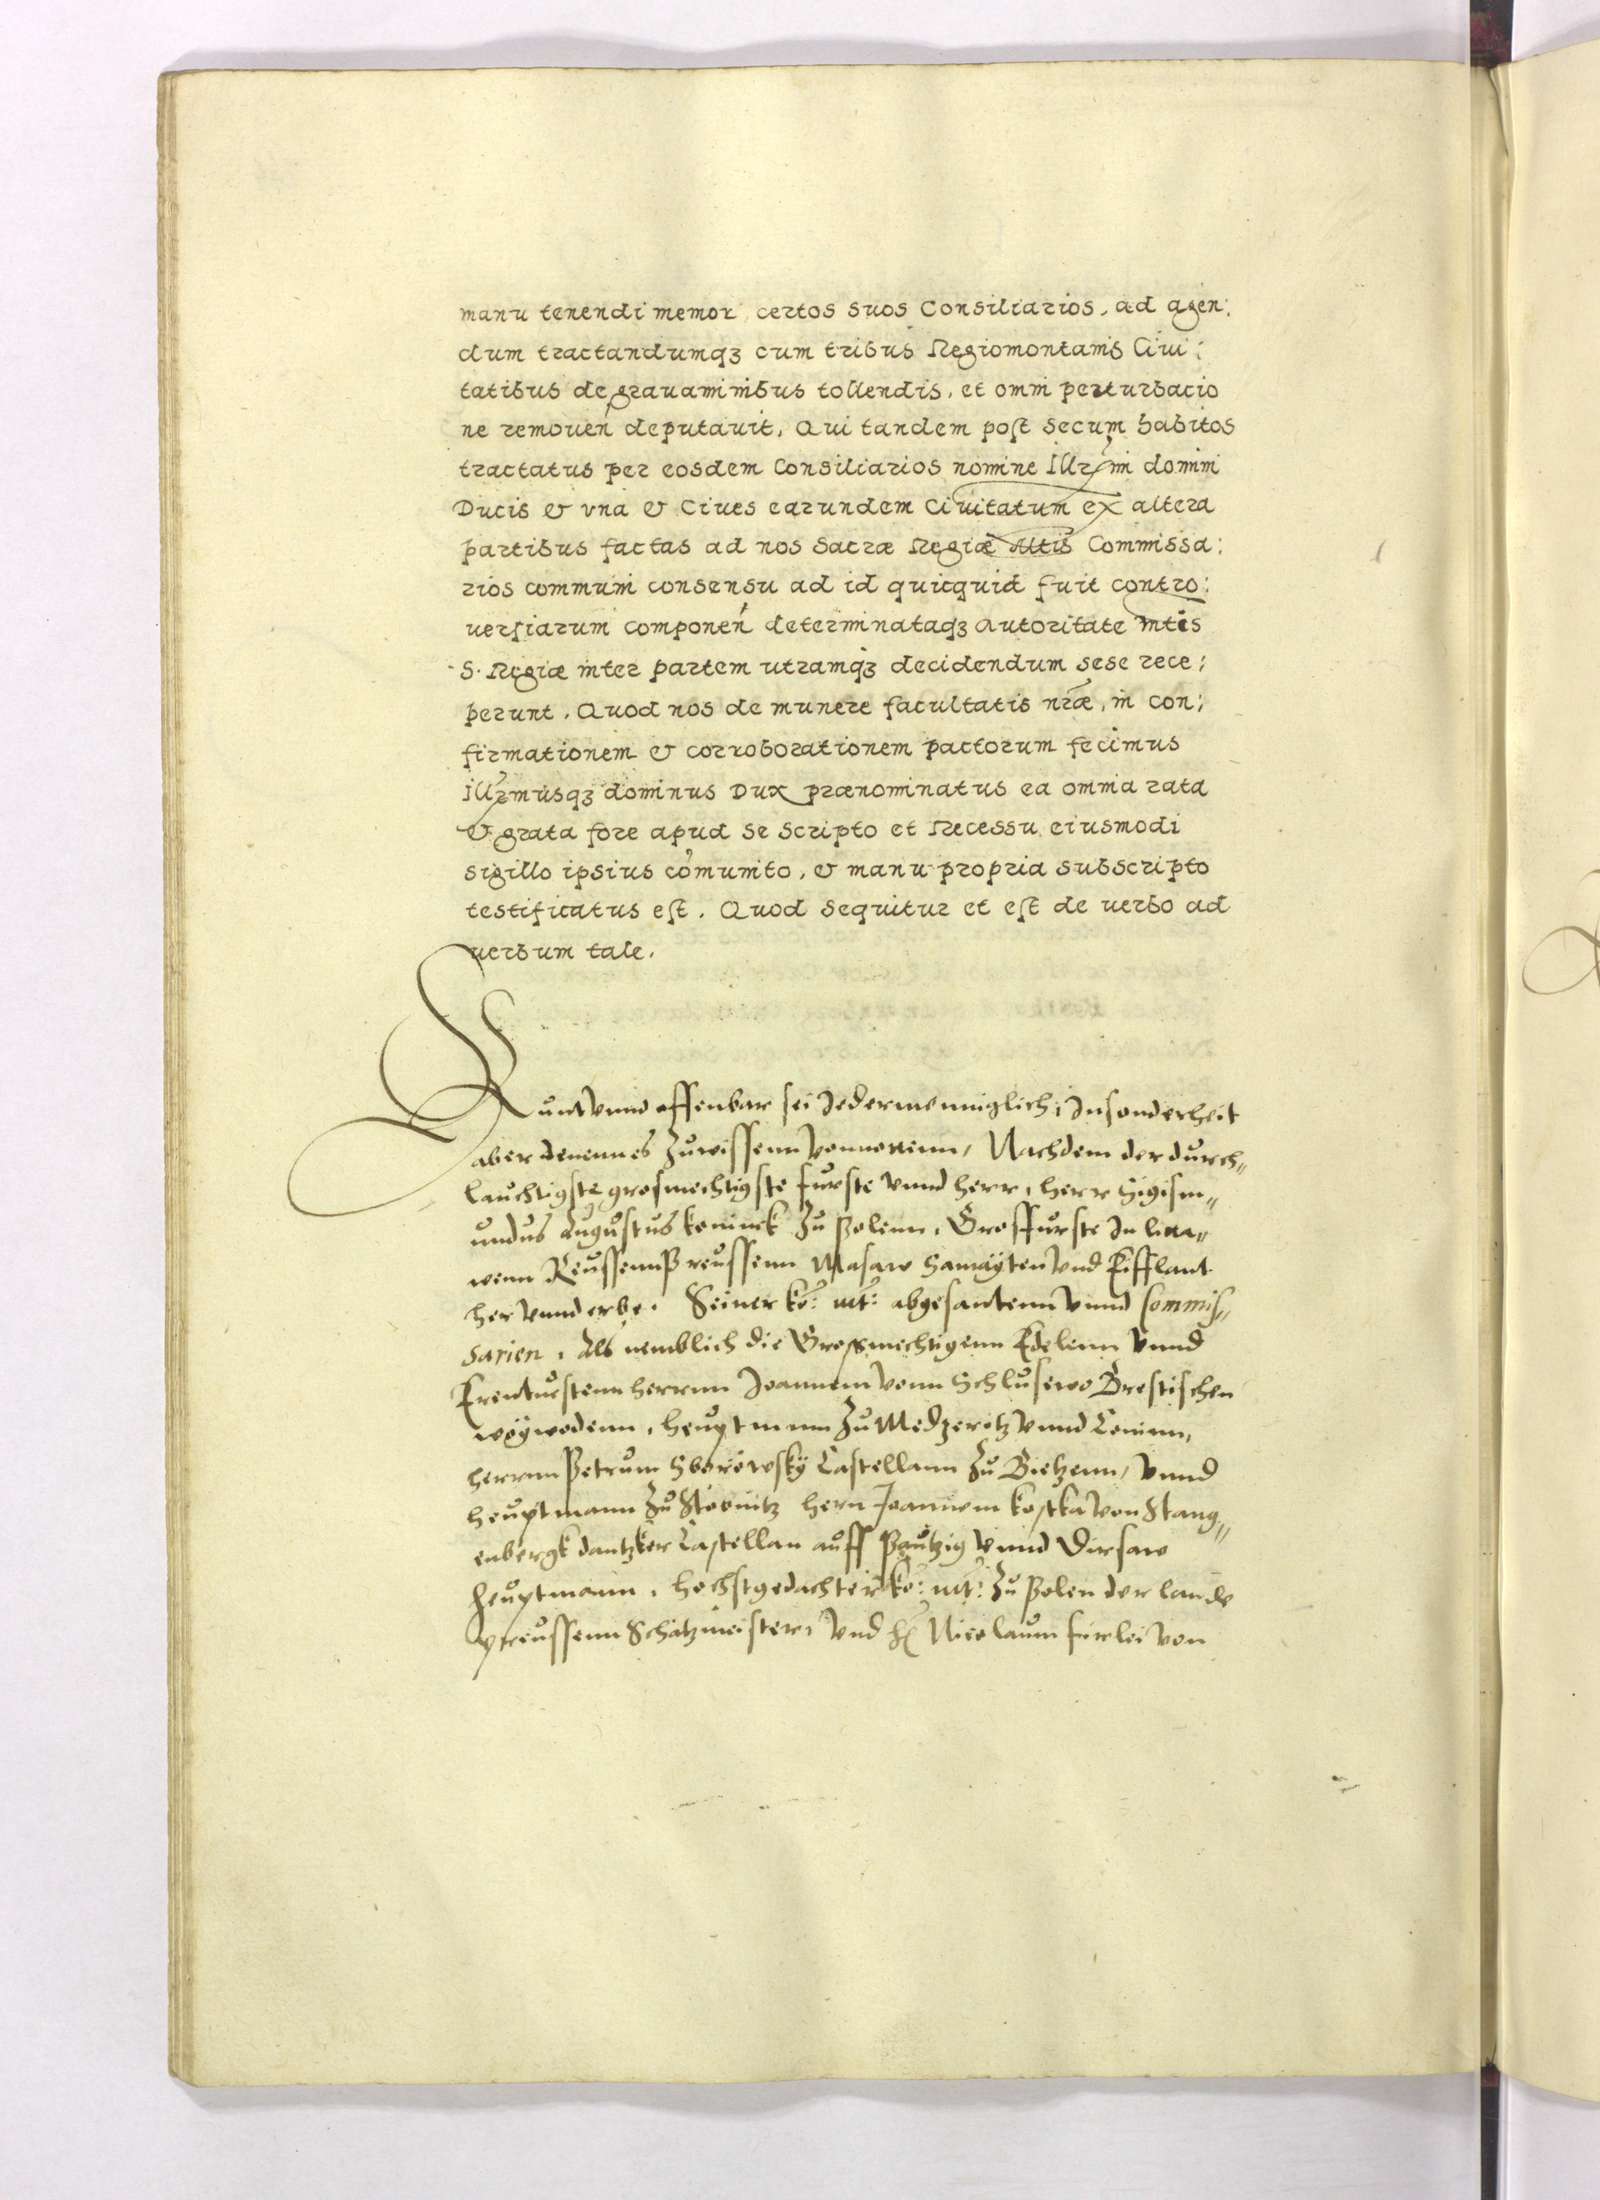 manu tenendi memor certos suos Consiliarios, ad agen:
dum tractandumqȝ cum tribus Regiomontanis Ciui:
tatibus de grauaminibus tollendis, et omni perturbacio
ne remouen̄ deputauit. Qui tandem post secum habitos
tractatus per eosdem Consiliarios nomine Illr̃mi domini
Ducis & vna & Ciues earundem Ciuitatum ex altera
partibus factas ad nos Sacræ Regiæ Mtis Commissa:
rios communi consensu ad id quicquid fuit contro:
uersiarum componen̄ determinataqȝ autoritate Mtis
S. Regiæ inter partem utramqȝ decidendum sese rece:
perunt. Quod nos de munere facultatis nr̃æ, in con:
firmationem & corroborationem pactorum fecimus
Illr̃musqȝ dominus Dux prænominatus ea omnia rata
& grata fore apud se scripto et Recessu eiusmodi
sigillo ipsius com̃unito, & manu propria subscripto
testificatus est. Quod sequitur et est de uerbo ad
uerbum tale.
Kunt vnnd offenbar sei Jedermenniglich, Jnsonderheit
aber denen es zuwissenn vonnotenn, Nachdem der durch„
lauchtigste grosmechtigste furste vnnd herr, herr Sigism„
undus Augustus koninck zu Polenn, Grosfurste In litta„
wenn Reussenn Preussenn Masaw Samayten vnd Eifflant
her vnnd erbe. Seiner ko: mt: abgesantenn vnnd Commis„
sarien, Als nemblich die Grossmechtigenn Edelenn vnnd
Erentuestenn herrnn Joannem vonn Schlusewo Brestischen
woywodenn, heuptmann zu Medzeritz vnnd Coninn,
herrnn Petrum Sborowsky Castellann zu Bietzenn, vnnd
heuptmann zu Stobnitz hern Joannem kostka von Stang„
enbergk dantzker Castellan auff Pautzig vnnd Dirsaw
heuptmann, hochstgedachter ko: mt: zu Polen der lande
Preussenn Schatzmeister, vnd h. Nicolaum firlei von